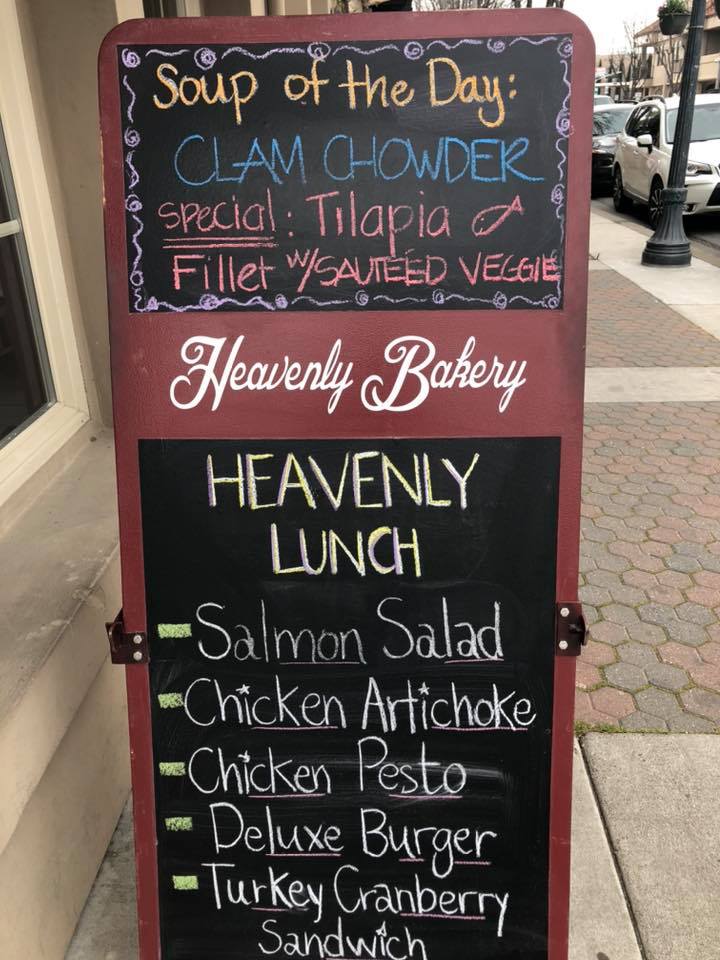 Soup of the Day:
CLAM CHOWDER
special: Tilapia
Fillet W/SAUTEED VEGGIE
Heavenly Bakery
HEAVENLY
LUNCH
- Salmon Salad
- Chicken Artichoke
- Chicken Pesto
- Deluxe Burger
- Turkey Cranberry
Sandwich